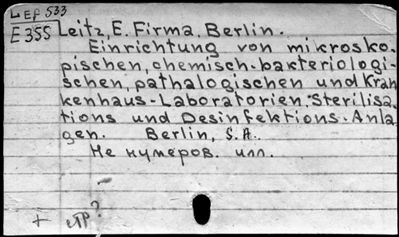 LEF 533
E 355 Leitz, E. Firma. Berlin.
Einrichtung von mikrosko-
pischen, chemisch-bakteriologi-
schen, pathalogischen und Kran
kenhaus-Laboratorien. Sterilisa-
tions und Desinfektions-Anla
gen. Berlin, S.A.
Не нумеров. илл.
+ стр?